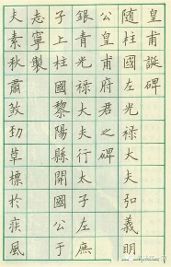 皇甫誕碑
隨柱國左光祿大夫弘義明
公皇甫府君之碑
銀青光祿大夫行太子左庶
子上柱國黎陽縣開國公于
志寧製
夫素秋肅煞勁草標於疾風